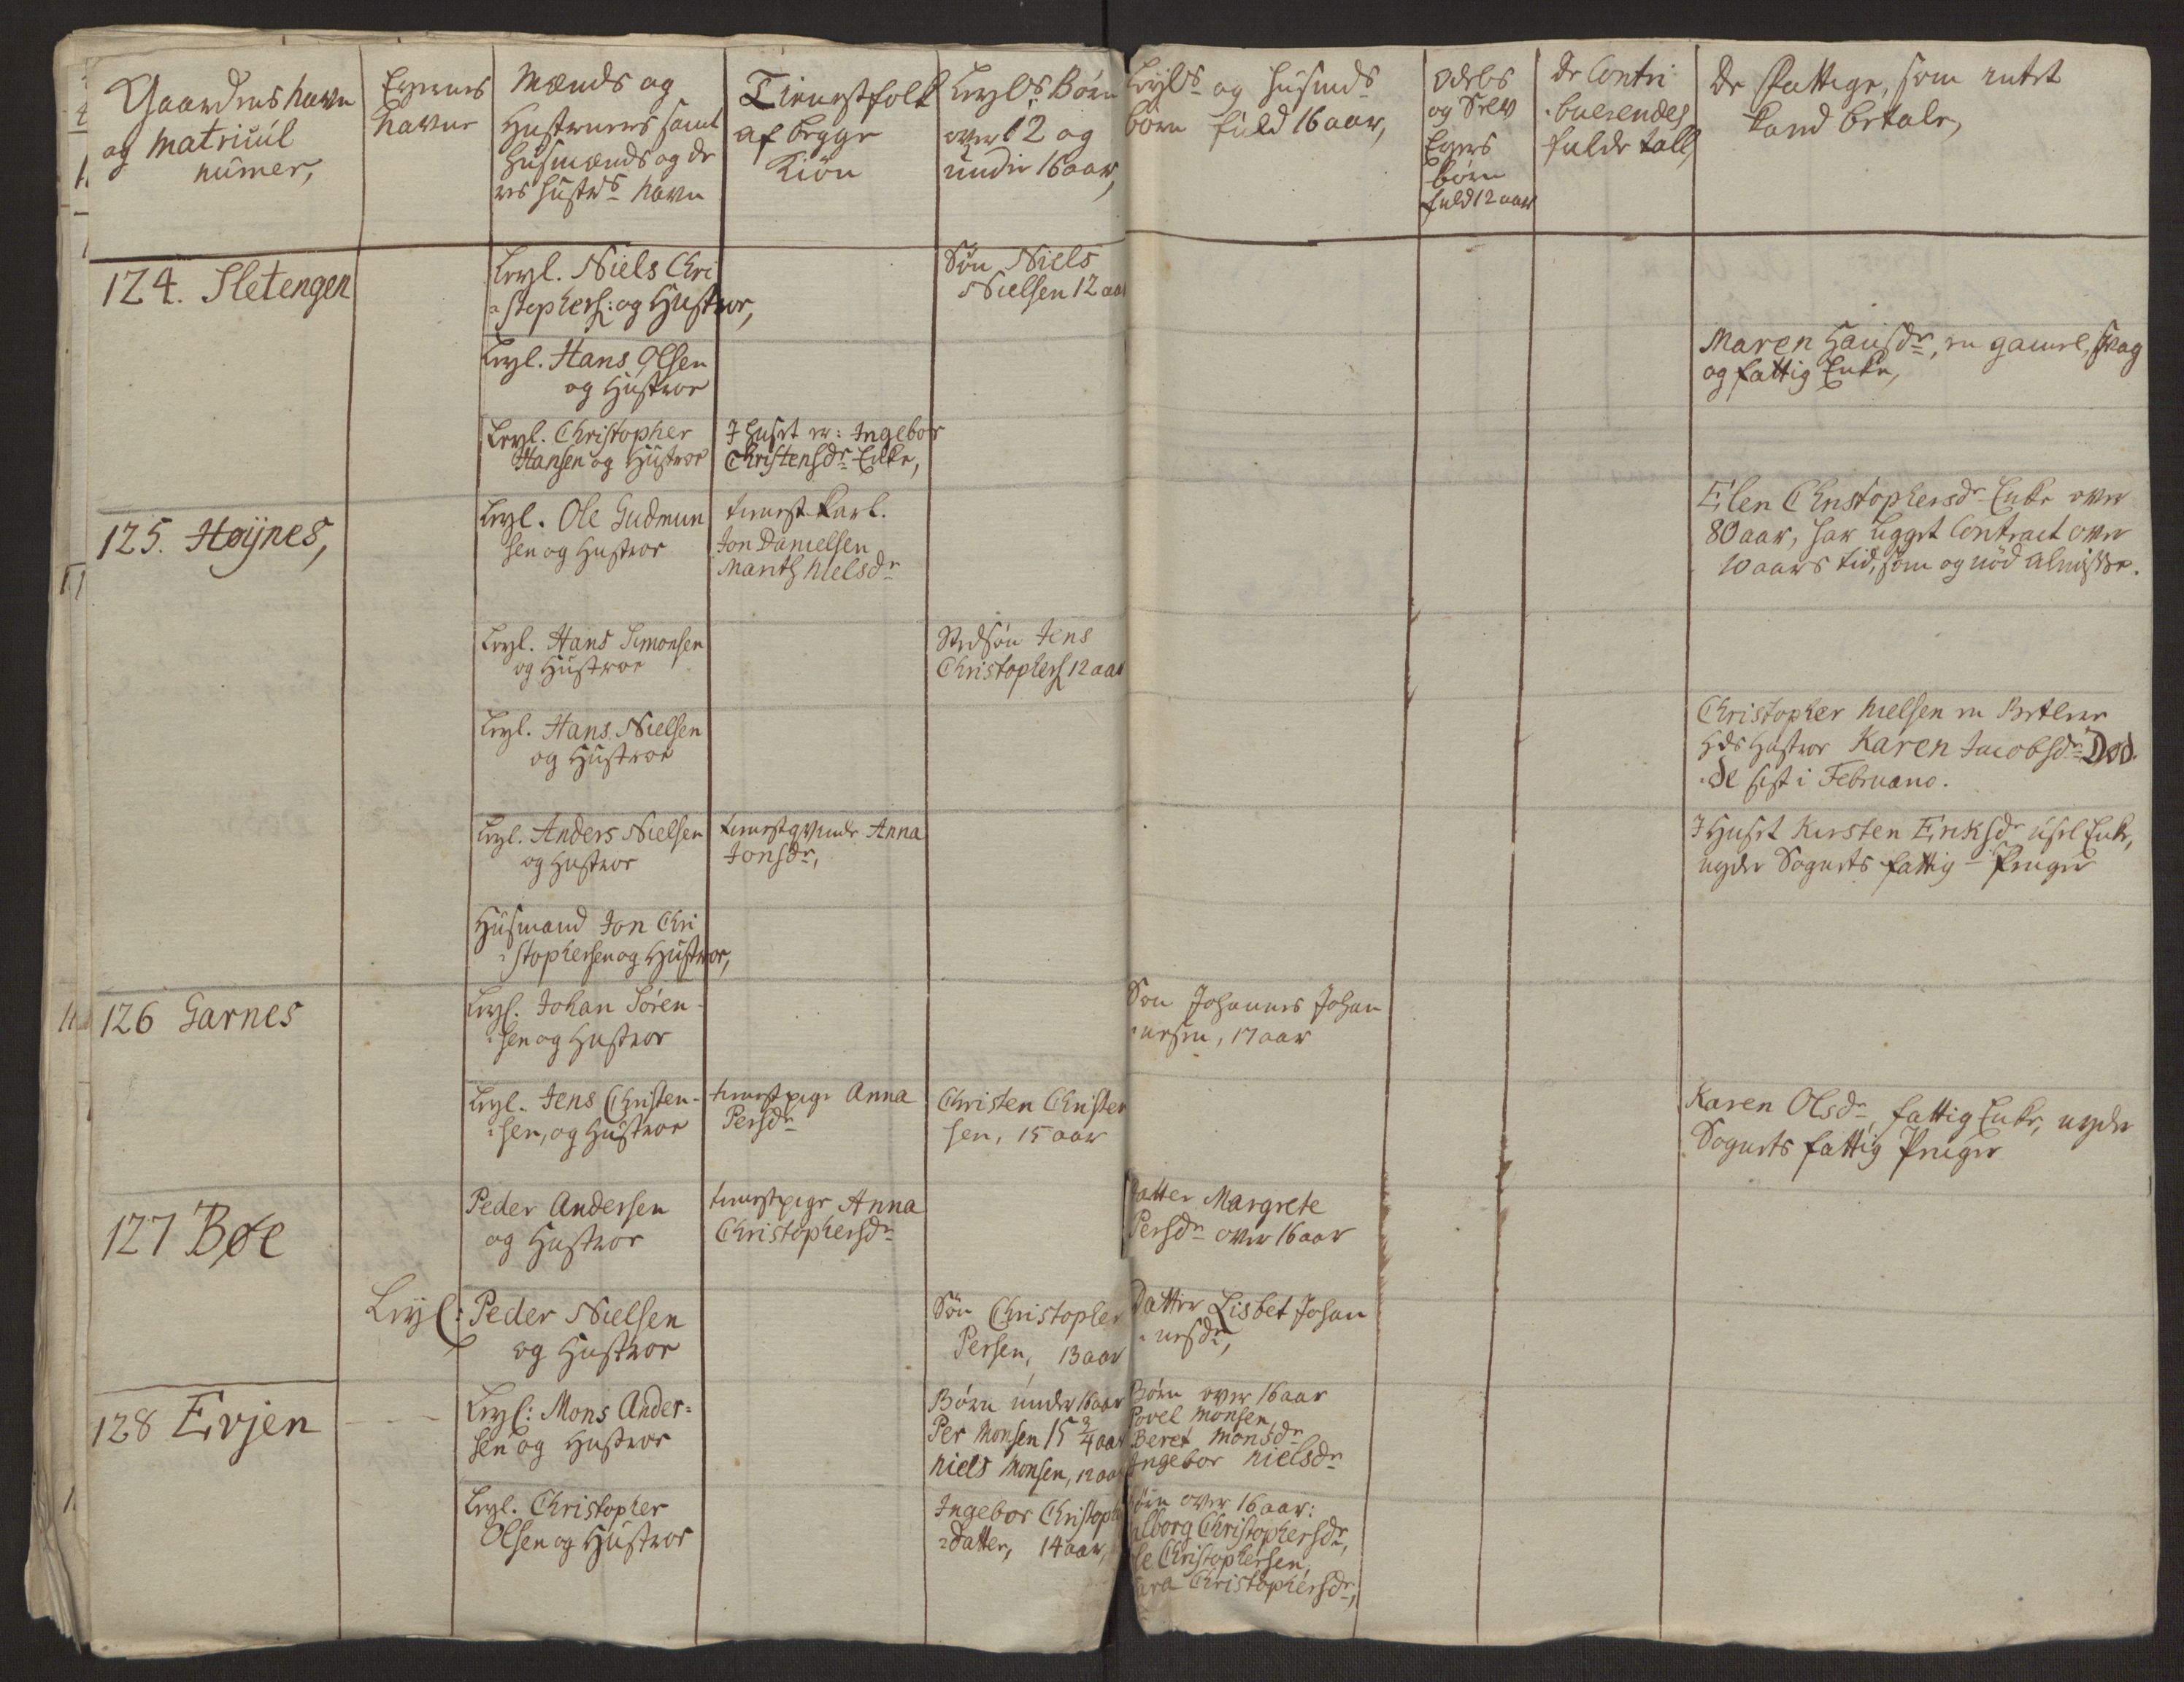 Gaardens havn
og Matricúl
númer,
Eyernes
havne
Mænds og
Hustruers samt
Húsmænds og de
res hústrs havn
Tienestfolk
af begge
Kiön
Leyls Börn
over 12 og
únder 16 aar,
Leyls og húsmds
börn fúld 16 aar,
Odels
og Selv
Eyers
börn
fuld 12 aar
de Contri
buerendes
fulde tall,
De fattige, som intet
kand betale,
124. Sletengen
Leyl. Niels Chri
stophers: og Hustroe,
Søn Niels
Nielsen 12 aar
Leyl. Hans Olsen
og Hustroe
Maren Hansdr, en gamel, svag
og fattig Enke,
Leyl. Christopher
Hansen og Hústroe
I huset er: Ingebor
Christensdr Enke,
125. Høÿnes,
Leyl. Ole Gudmun
sen og Hustroe
tienest karl.
Jon Danielsen
Marith Nielsdr
Elen Christophersdr Enke over
80 aar, har ligget Contract over
10 aars tid, som og nöd almisse.
Leyl. Hans Simonsen
og Hústroe
Stedsøn Jens
Christophers 12 aar
Leyl. Hans Nielsen
og Hústroe
Christopher Nielsen en Betler
hds Hustroe Karen Jacobsdr Død
de sist i Februario.
Leyl. Anders Nielsen
og Hustroe
tienestqvinde Anna
Jonsdr,
I Huset Kirsten Eriksdr úsel Enke,
nyder Sognets fattig Penger
Húsmand Jon Chri
stophersen og Hústroe,
126 Garnes
Leyl. Johan Sören-
sen og Hustroe
Søn Johannes Johan
nesen, 17 aar
Leyl. Jens Christen-
sen, og Hústroe
tienestpige Anna
Persdr
Christen Christen
sen, 15 aar
Karen Olsdr, fattig Enke, nyder
Sognets fattig Penger
127 Bøe
Peder Andersen
og Hustroe
tienestpige Anna
Christophersdr
Datter Margrete
Persdr over 16 aar
Leÿl: Peder Nielsen
og Hustroe
Sön Christopher
Persen, 13 aar
Datter Lisbet Johan
nesdr,
128 Evjen
Leyl: Mons Ander=
sen og Hustroe
Börn únder 16 aar
Per Monsen 15 3/4 aar
Niels Monsen, 12 aar
Börn over 16 aar
Povel Monsen,
Beret Monsdr
Ingebor Nielsdr
Leyl. Christopher
Olsen og Hústroe
Ingebor Christoph
Datter, 14 aar,
Börn over 16 aar:
alborg Christophersdr,
le Christophersen,
ara Christophersdr,